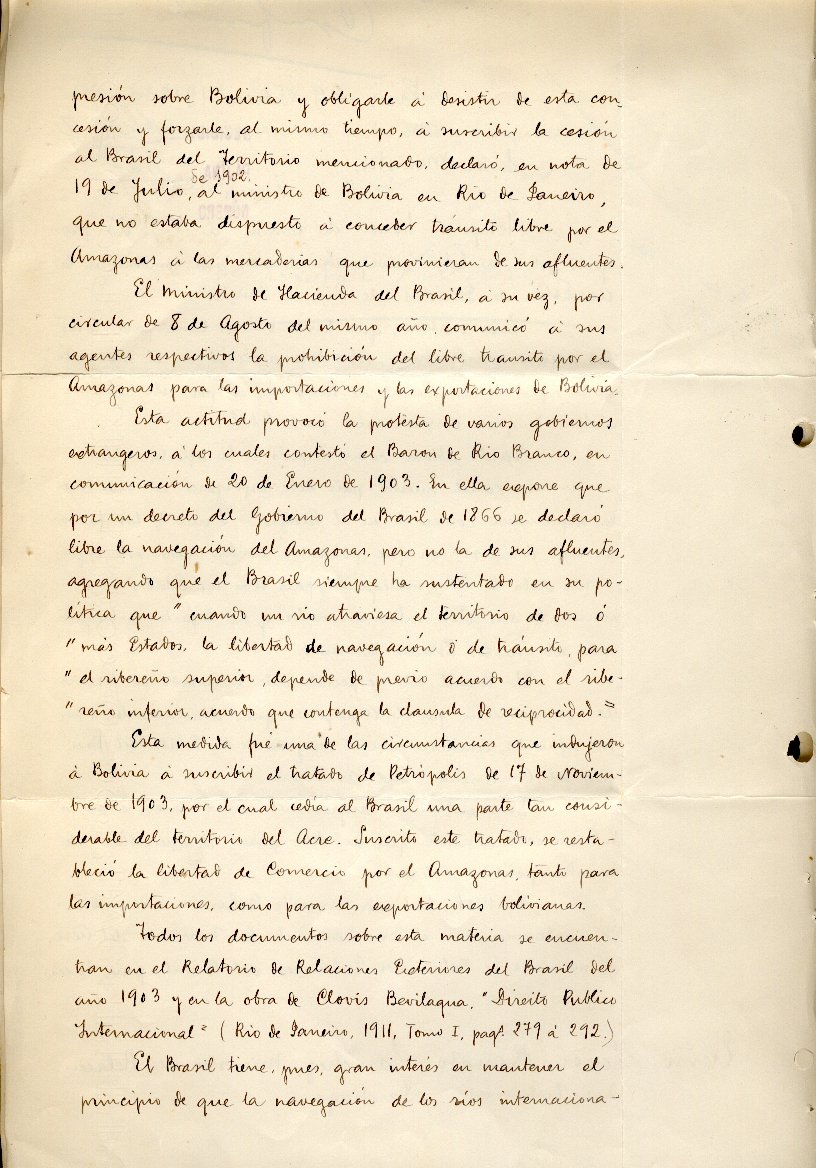 presión sobre Bolivia y obligarle á desistir de esta con-
cesión y forzarle, al mismo tiempo, á suscribir la cesión
al Brasil del Territorio mencionado, declaró, en nota de
de 1902.
19 de Julio, al ministro de Bolivia en Rio de Janeiro,
que no estaba dispuesto á conceder tránsito libre por el
Amazonas á las mercaderias que provinieran de sus afluentes.
El Ministro de Hacienda del Brasil, á su vez, por
circular de 8 de Agosto del mismo año, comunicó á sus
agentes respectivos la prohibición del libre transito por el
Amazonas para las importaciones y las exportaciones de Bolivia.
Esta actitud provocó la protesta de varios gobiernos
extrangeros, á los cuales contestó el Baron de Rio Branco, en
comunicación de 20 de Enero de 1903. En ella expone que
por un decreto del Gobierno del Brasil de 1866 se declaró
libre la navegación del Amazonas, pero no la de sus afluentes,
agregando que el Brasil siempre ha sustentado en su po-
lítica que "cuando un rio atraviesa el territorio de dos ó
"más Estados, la libertad de navegación ó de tránsito, para
"el ribereño superior, depende de previo acuerdo con el ribe-
"reño inferior, acuerdo que contenga la clausula de reciprocidad."
Esta medida fué una de las circumstancias que indujeron
á Bolivia á suscribir el tratado de Petrópolis de 17 de Noviem-
bre de 1903, por el cual cedía al Brasil una parte tan consi-
derable del territorio del Acre. Suscrito este tratado, se resta-
bleció la libertad de Comercio por el Amazonas, tanto para
las importaciones, como para las exportaciones bolivianas.
Todos los documentos sobre esta materia se encuen-
tran en el Relatorio de Relaciones Exteriores del Brasil del
año 1903 y en la obra de Clovis Bevilaqua, "Direito Publico
Internacional" (Rio de Janeiro, 1911, Tomo I, pags. 279 á 292.)
El Brasil tiene, pues, gran interés en mantener el
principio de que la navegación de los ríos internaciona-